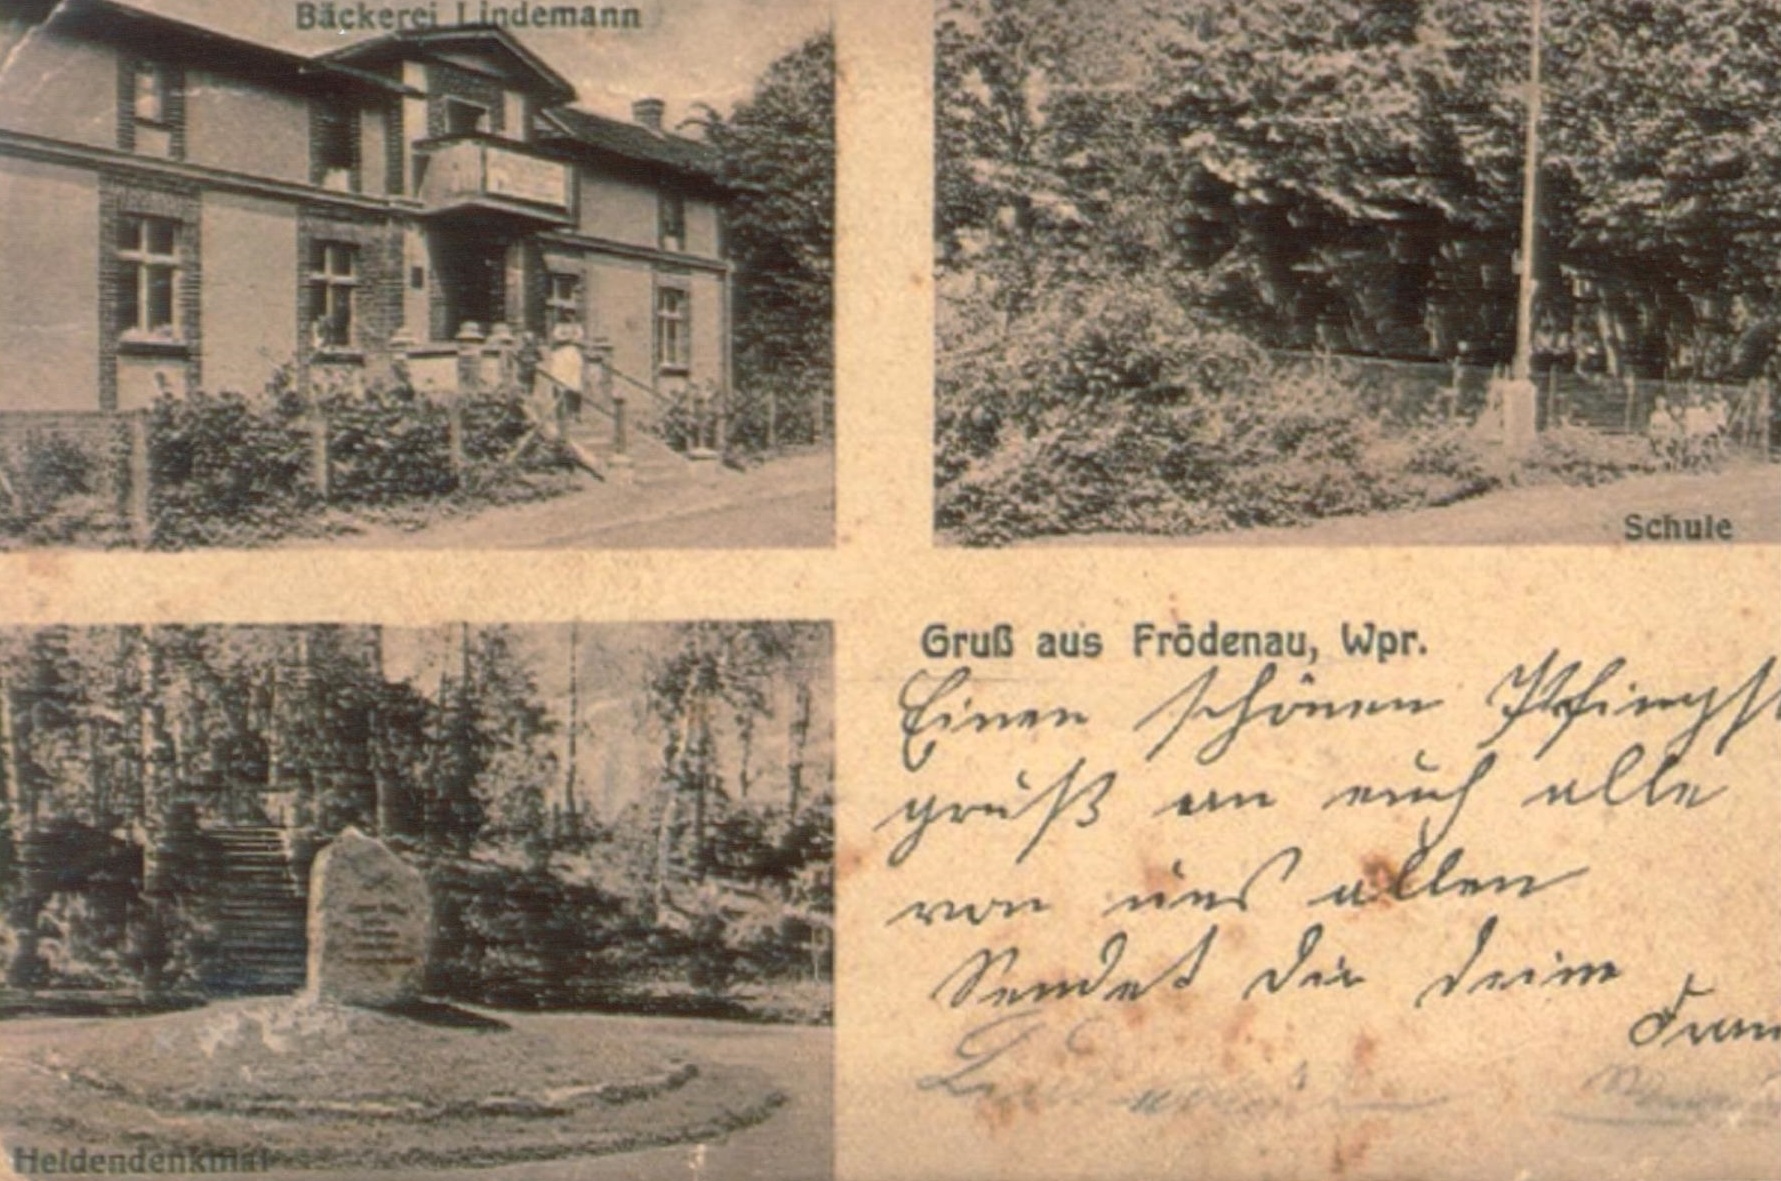 Bäckerei Lindemann
Schule
Heldendenkmal
Gruß aus Frödenau, Wpr.
Einen schönen Pfingst
grüß an euch alle
von uns allen
Sendet dir deine